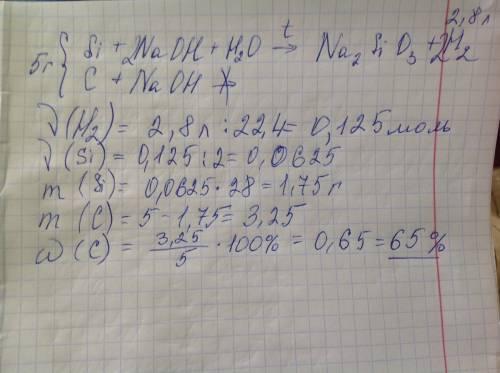 2,8л
5г { Si + 2NaOH + H₂O →ᵗ Na₂SiO₃ + 2H₂
C + NaOH ↛
ν(H₂) = 2,8л : 22,4 = 0,125 моль
ν(Si) = 0,125 : 2 = 0,0625
m(Si) = 0,0625 · 28 = 1,75г
m(C) = 5 - 1,75 = 3,25
ω(C) = 3,25/5 · 100% = 0,65 = 65%